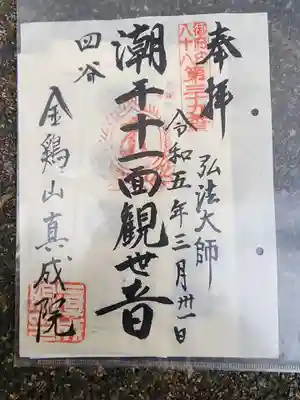 奉拝
御府内
八十八 第三十九番
弘法大師
令和五年三月卅一日
潮干十一面観世音
四谷
金鶏山真成院